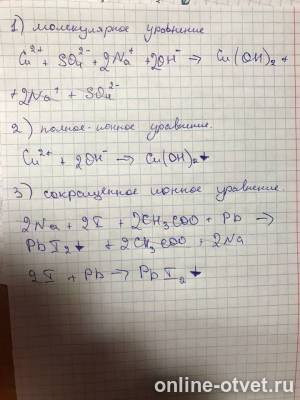 1) молекулярное уравнение
Cu²⁺ + SO₄²⁻ + 2Na⁺ + 2OH⁻ → Cu(OH)₂↓
+ 2Na⁺ + SO₄²⁻
2) полное-ионное уравнение.
Cu²⁺ + 2OH⁻ → Cu(OH)₂↓
3) сокращенное ионное уравнение.
2Na + 2I + 2CH₃COO + Pb →
PbI₂↓ + 2CH₃COO + 2Na
2I + Pb → PbI₂↓
online-otvet.ru